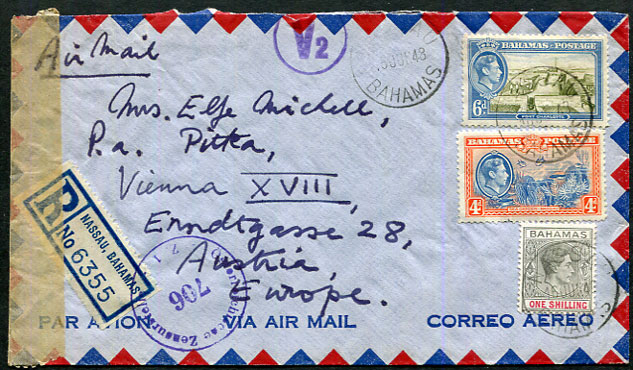 Air Mail
V2
BAHAMAS
BAHAMAS · POSTAGE
6d
FORT CHARLOTTE
BAHAMAS POSTAGE
4d
4d
BAHAMAS
ONE SHILLING
Mrs. Elfe Michell,
P.a. Pitka,
Vienna XVIII,
Erndtgasse 28,
Austria,
Europe.
R
NASSAU, BAHAMAS
No 6355
706
PAR AVION VIA AIR MAIL CORREO AEREO